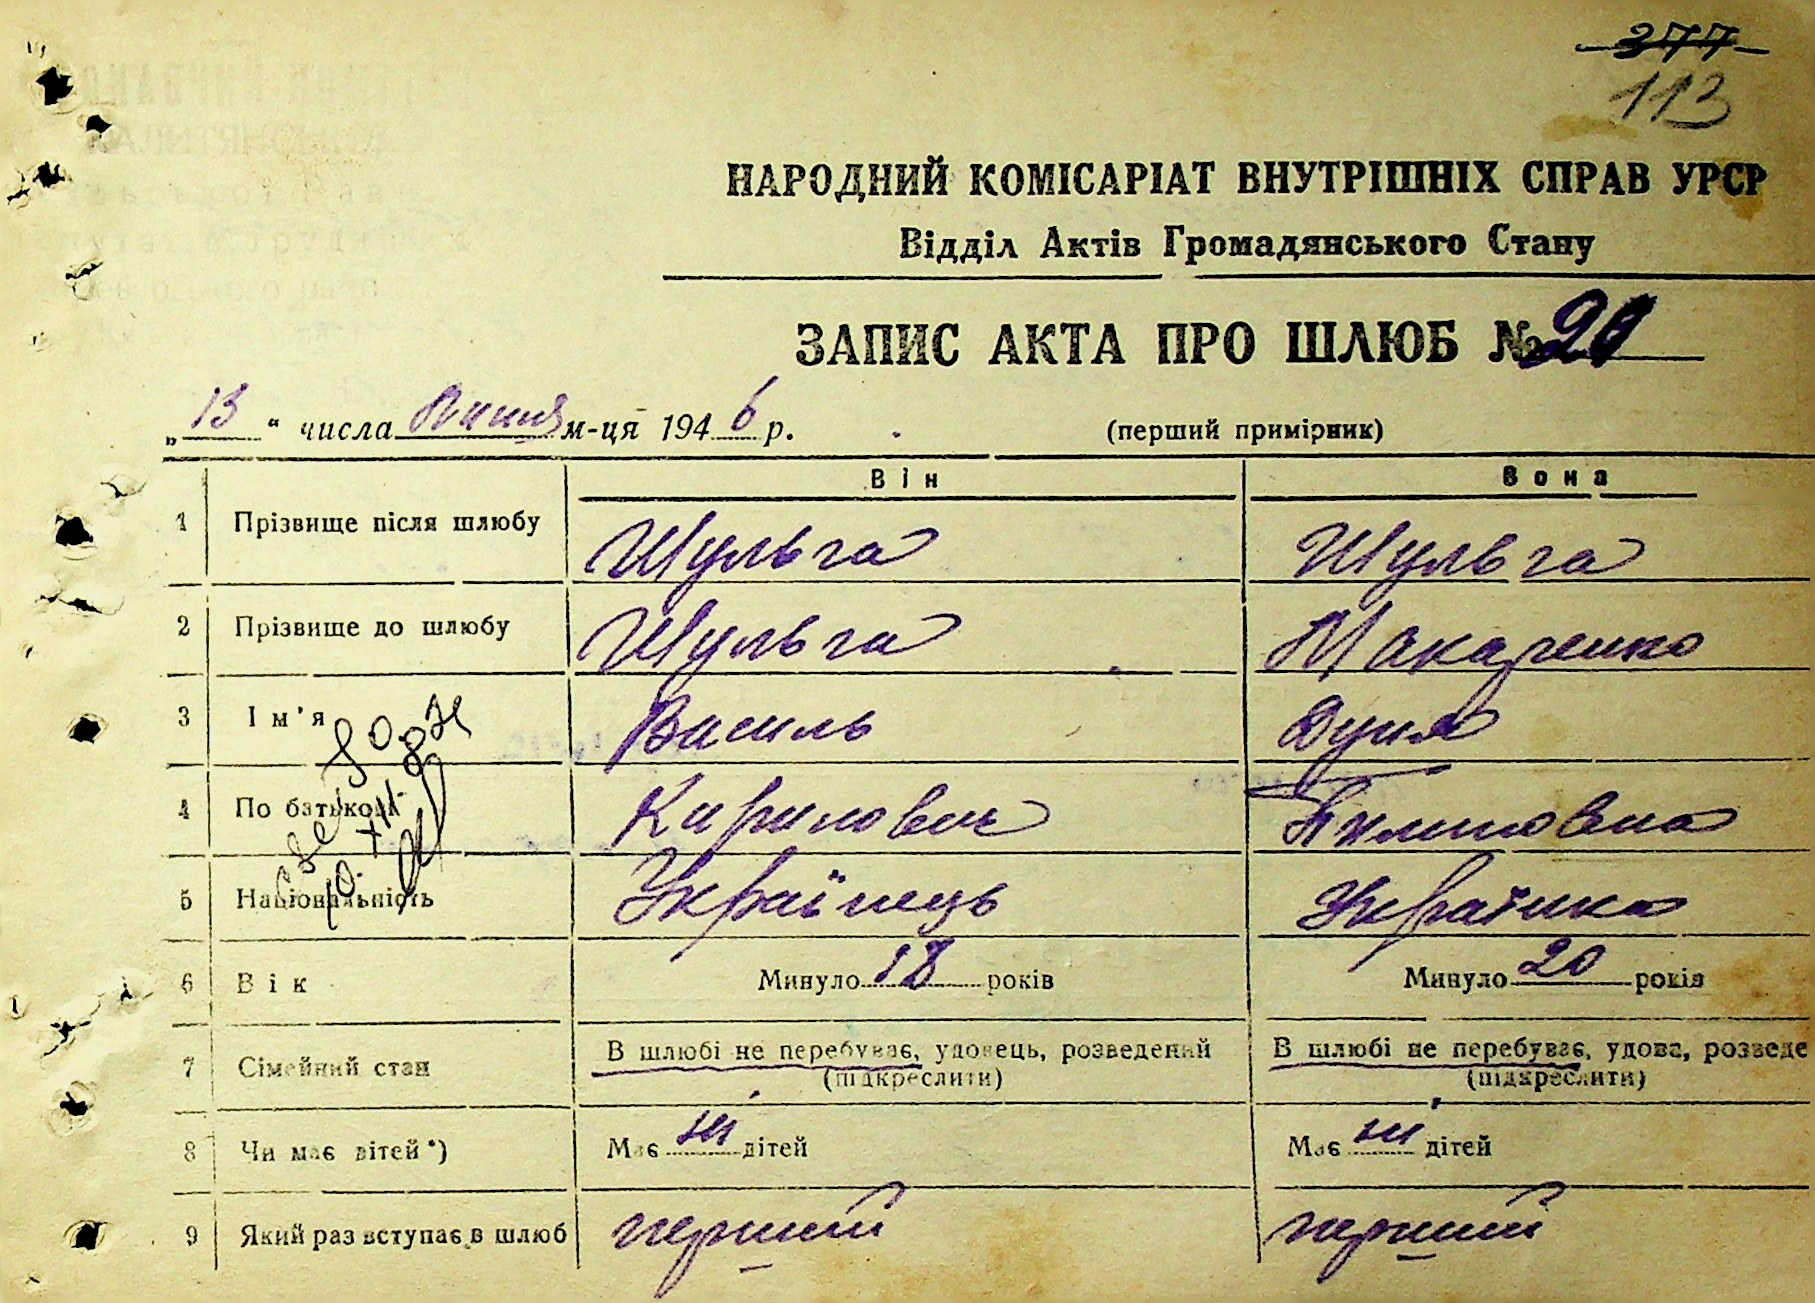 377
113
НАРОДНИЙ КОМІСАРІАТ ВНУТРІШНІХ СПРАВ УРСР
Відділ Актів Громадянського Стану
ЗАПИС АКТА ПРО ШЛЮБ № 20
„13“ числа м-ця 1946 р. (перший примірник)
Він Вона
1 Прізвище після шлюбу Шульга Шульга
2 Прізвище до шлюбу Шульга Макаренко
3 Ім'я Василь Дуня
4 По батькові Кирилович Пилиповна
5 Національність Українець Українка
6 Вік Минуло 18 років Минуло 20 років
7 Сімейний стан В шлюбі не перебуває, удовець, розведений В шлюбі не перебуває, удова, розведе
(підкреслити) (підкреслити)
8 Чи має дітей*) Має ні дітей Має ні дітей
9 Який раз вступає в шлюб перший перший